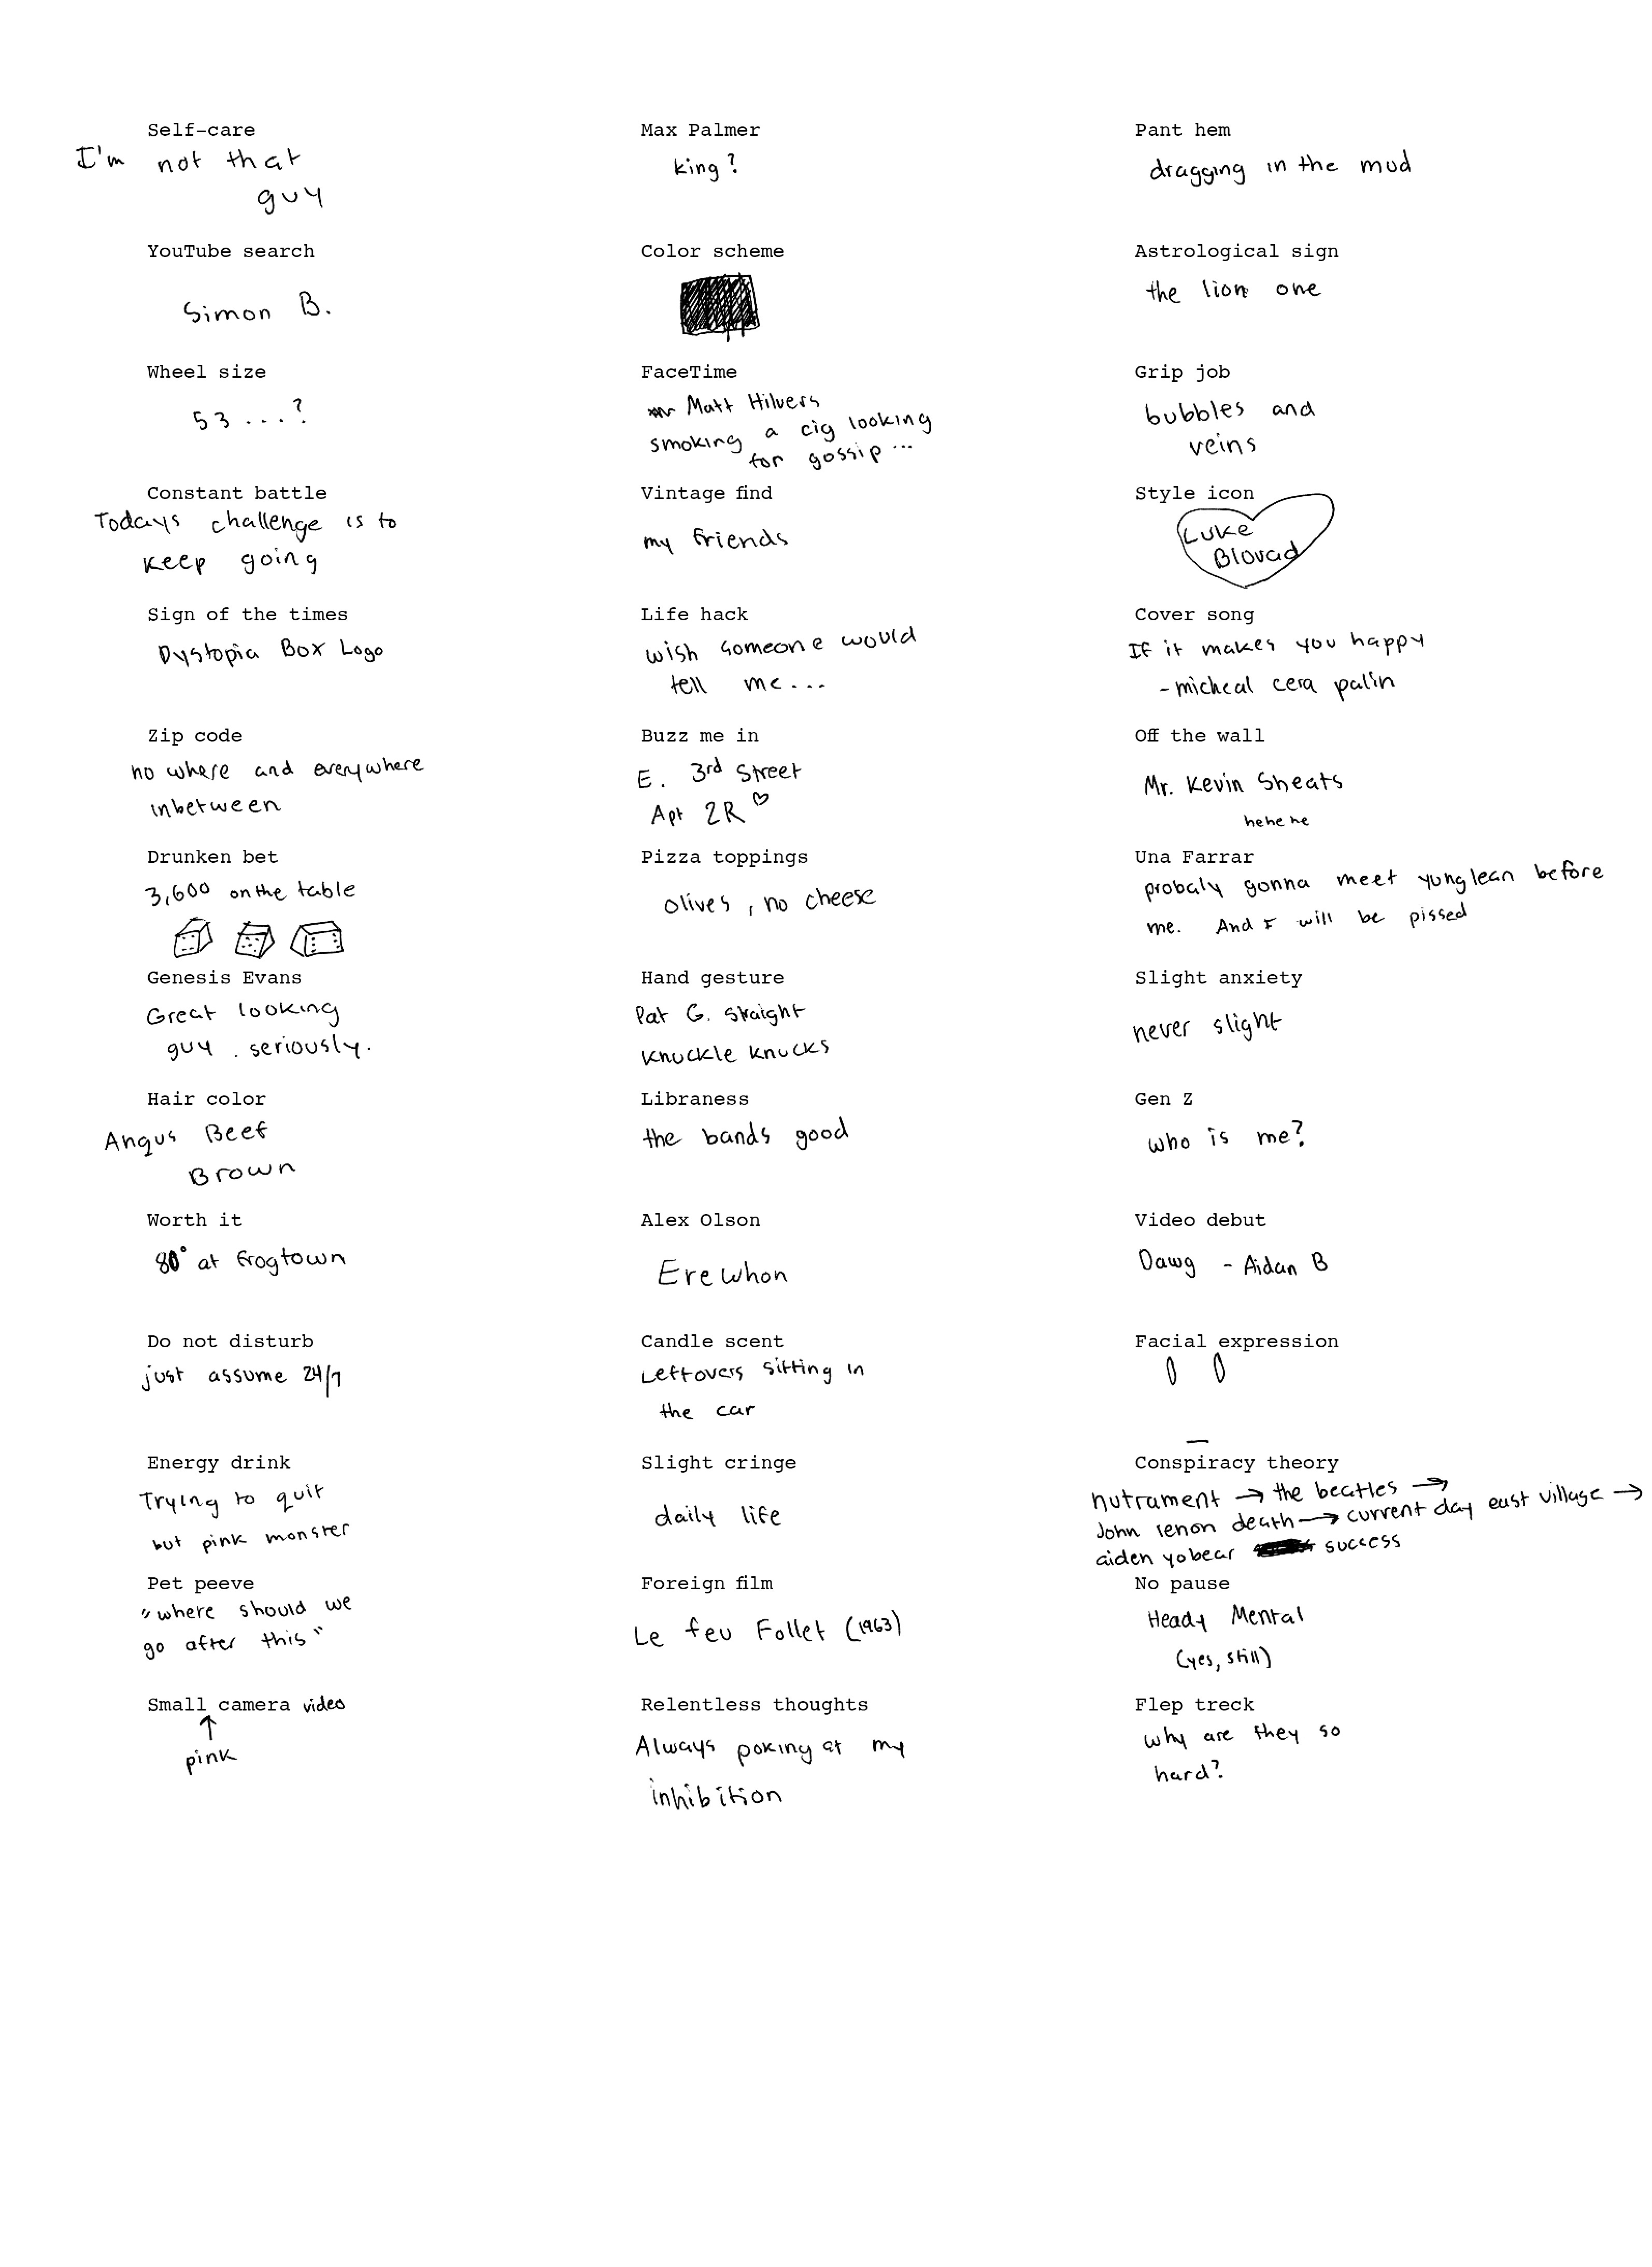 Self-care
I'm not that
guy
Max Palmer
king?
Pant hem
dragging in the mud
YouTube search
Simon B.
Color scheme
Astrological sign
the lion one
Wheel size
53 ...?
FaceTime
Matt Hilvers
smoking a cig looking
for gossip...
Grip job
bubbles and
veins
Constant battle
Todays challenge is to
keep going
Vintage find
my friends
Style icon
Luke
Blovad
Sign of the times
Dystopia Box Logo
Life hack
wish someone would
tell me...
Cover song
If it makes you happy
- micheal cera palin
Zip code
no where and everywhere
inbetween
Buzz me in
E. 3rd Street
Apt 2R ♡
Off the wall
Mr. Kevin Sheats
hehehe
Drunken bet
3,600 on the table
Pizza toppings
olives, no cheese
Una Farrar
probaly gonna meet yunglean before
me. And I will be pissed
Genesis Evans
Great looking
guy. seriously.
Hand gesture
Pat G. straight
knuckle knucks
Slight anxiety
never slight
Hair color
Angus Beef
Brown
Libraness
the bands good
Gen Z
who is me?
Worth it
80° at frogtown
Alex Olson
Erewhon
Video debut
Dawg - Aidan B
Do not disturb
just assume 24/7
Candle scent
Leftovers sitting in
the car
Facial expression
Energy drink
Trying to quit
but pink monster
Slight cringe
daily life
Conspiracy theory
nutrament → the beatles →
John lenon death → current day east village →
aiden yobear success
Pet peeve
"where should we
go after this"
Foreign film
Le feu Follet (1963)
No pause
Heady Mental
(yes, still)
Small camera video
↑
pink
Relentless thoughts
Always poking at my
inhibition
Flep treck
why are they so
hard?